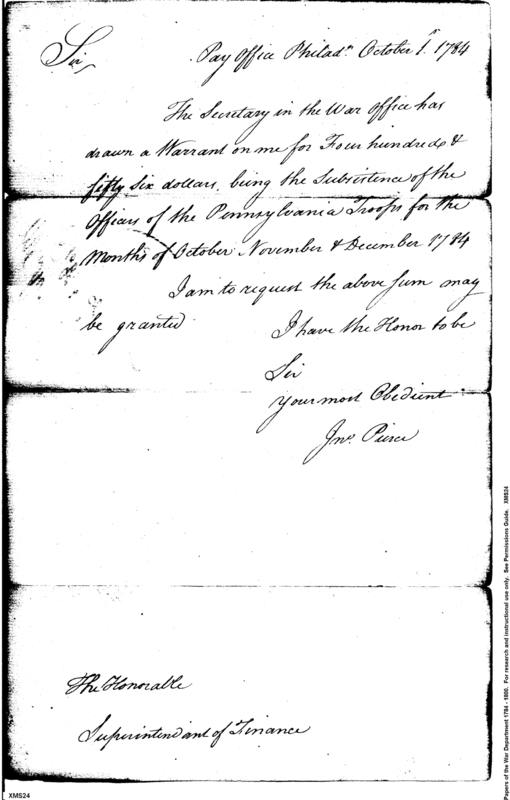 Sir
Pay Office Philada. October 1st. 1784
The Secretary in the War Office has
drawn a Warrant on me for Four hundred &
fifty Six dollars, being the Subsistence of the
Officers of the Pennsylvania Troops for the
Months of October November & December 1784
I am to request the above Sum may
be granted
I have the Honor to be
Sir
your most Obedient
Jno. Pierce
The Honorable
Superintendant of Finance
XMS24
Papers of the War Department 1784 - 1800. For research and instructional use only. See Permissions Guide. XMS24